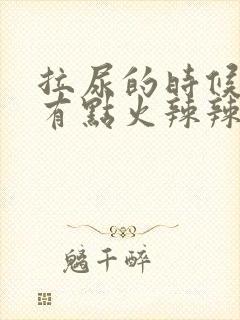 拉尿的時候
有點火辣辣
魑千醉